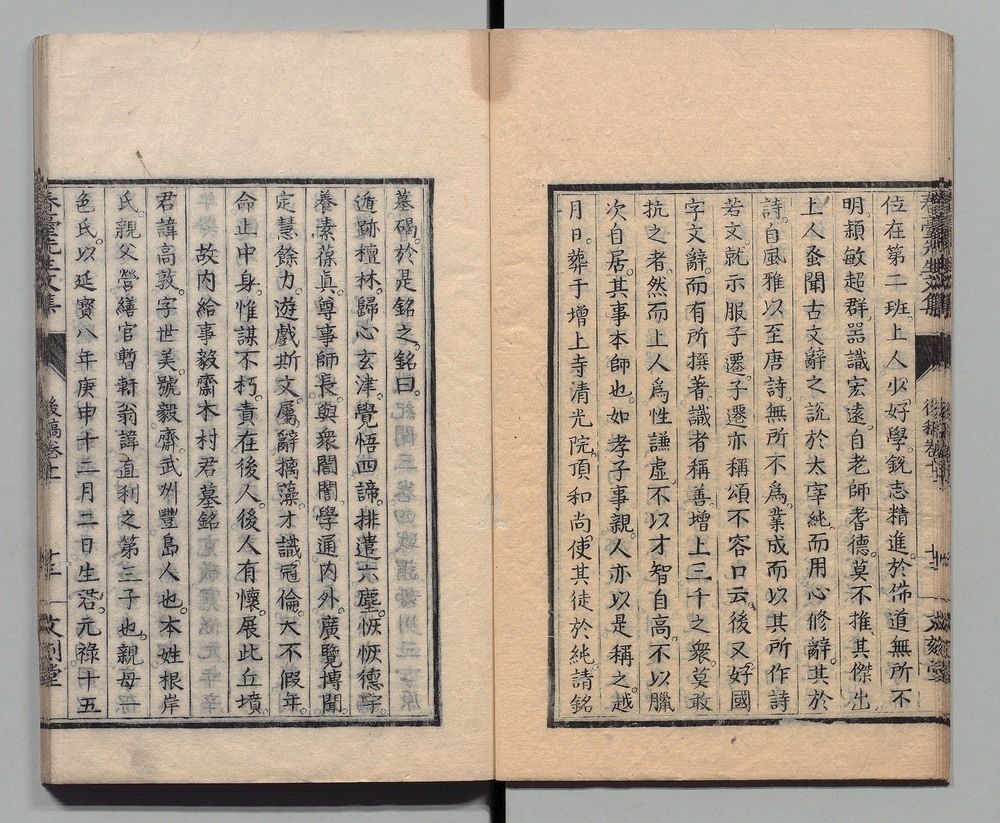 位在第二班。上人少好學。銳志精進。於佛道無所不
明。穎敏超群。器識宏遠。自老師耆德。莫不推其傑出。
上人蚤聞古文辭之說於太宰純。而用心修辭。其於
詩。自風雅以至唐詩。無所不為。業成而以其所作詩
若文。就示服子遷。子遷亦稱頌不容口云。後又好國
字文辭。而有所撰著。識者稱善。增上三千之衆。莫敢
抗之者。然而上人為性謙虛。不以才智自高。不以臘
次自居。其事本師也。如孝子事親。人亦以是稱之。越
月日。葬于增上寺清光院。頂和尚。使其徒於純請銘
墓碣。於是銘之。銘曰。
遁跡檀林。歸心玄津。覺悟四諦。排遣六塵。恢恢德宇。
養素葆眞。尊事師長。與衆誾誾。學通內外。廣覽博聞。
定慧餘力。遊戲斯文。屬辭摛藻。才識冠倫。大不假年。
命止中身。惟謀不朽。責在後人。後人有懷。展此丘墳。
故內給事毅齋木村君墓銘
君諱高敦。字世美。號毅齋。武州豐島人也。本姓根岸
氏。親父營繕官暫軒翁諱直利之第三子也。親母一
色氏。以延寶八年庚申十二月二日生君。元祿十五
春臺先生文集
後稿卷十
文刻堂